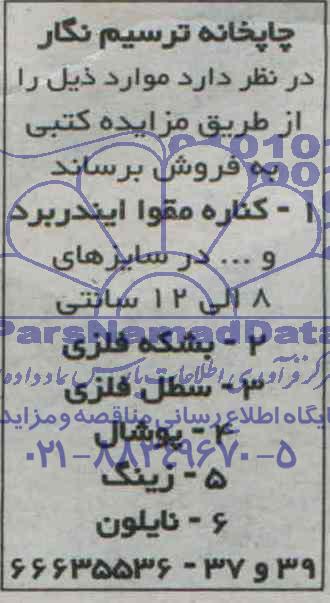 چاپخانه ترسیم نگار
در نظر دارد موارد ذیل را
از طریق مزایده کتبی
به فروش برساند
۱ - کناره مقوا ایندربرد
و ... در سایزهای
۸ الی ۱۲ سانتی
ParsNamadData
۲ - بشکه فلزی
۳ - سطل فلزی
پایگاه اطلاع رسانی مناقصه و مزایده
۴ - پوشال
۰۲۱-۸۸۳۴۹۶۷۰-۵
۵ - رینگ
۶ - نایلون
۳۹ و ۳۷ - ۶۶۶۳۵۵۳۶